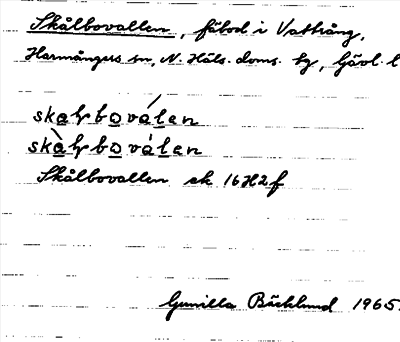 Skålbovallen, fäbod i Vattrång,
Harmångers sn, N. Häls. doms. tg, Gävl. l
skaɫbovalen
skàɫbováლen
Skålbovallen ek 16H2f
Gunilla Bäcklund 1965.